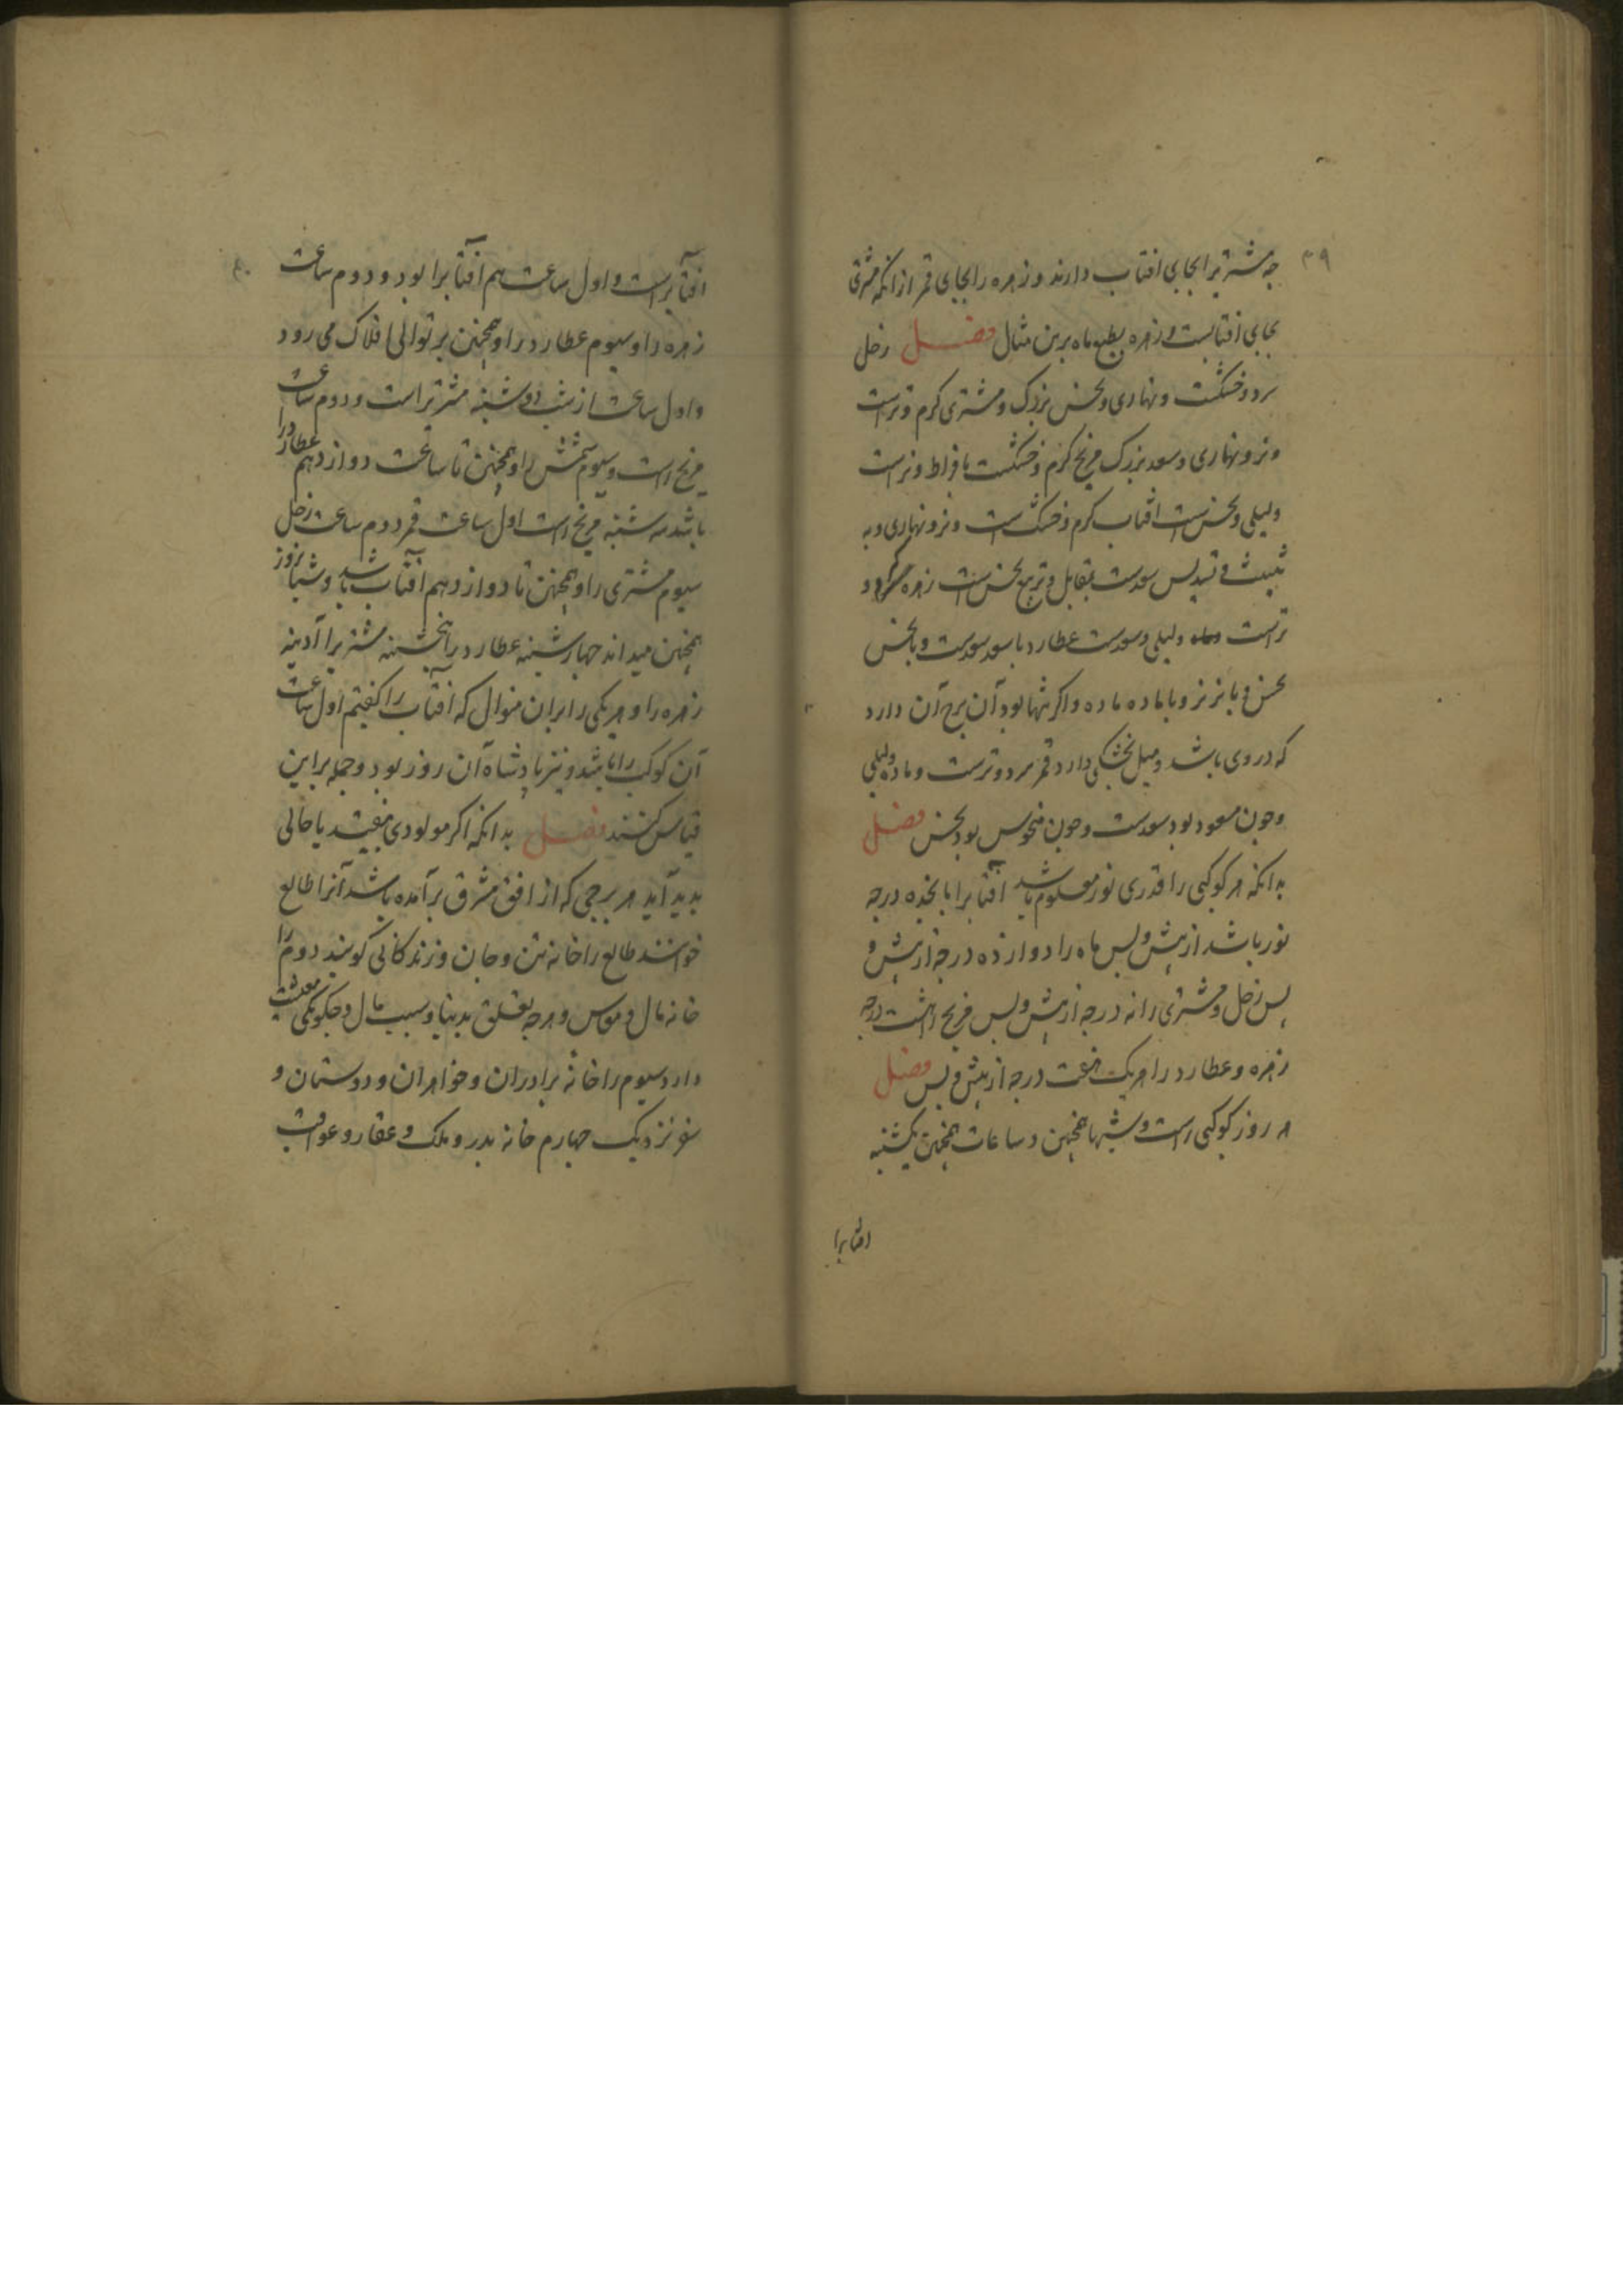 ۳۹
جه مشتریرا بجای افتاب دارند و زهره را بجای قمر از انکه مشتری
بجای افتابست و زهره بطبع ماه برین مثال فصل زحل
سرد و خشکست و نهاری و نحس بزرک و مشتری کرم و تراست
و نر و نهاری و سعد بزرک مریخ کرم و خشکست بافراط و نراست
و لیلی و نحس است افتاب کرم و خشک است و نر و نهاری و به
تثلیث و تسدیس سعدست بمقابل و تربیع نحس است زهره سرد و
تراست و ماده و لیلی و سعدست عطارد با سعد سعدست و با نحس
نحس و با نر نر و با ماده ماده و اکر تنها بود آن برج آن دارد
که در وی باشد و میل بخشکی دارد قمر سرد و ترست و ماده و لیلی
و جون مسعود بود سعدست و جون منحوس بود نحس فصل
بدانکه هر کوکبی را قدری نور معلوم باشد آفتابرا پانخده درجه
نور باشد از پیش و پس ماه را دوازده درجه از پیش و
پس زحل و مشتری را نه درجه از پیش و پس مریخ را هشت درجه
زهره و عطارد را هر یک هفت درجه از پیش و پس فصل
هر روز کوکبی راست و شبها همجنین و ساعات همجنین یکشنبه
افتابرا
۴۰
افتابراست و اول ساعت هم آفتابرا بود و دوم ساعت
زهره را و سیوم عطارد را و همجنین بر توالی افلاک می رود
و اول ساعت از شب دوشنبه مشتریراست و دوم ساعت
مریخ راست و سیوم شمس را و همجنین تا ساعت دوازدهم عطارد را
باشد سه شنبه مریخ راست اول ساعت قمر دوم ساعت زحل
سیوم مشتری را و همجنین تا دوازدهم آفتاب باشد و شبانروز
همجنین میداند جهارشنبه عطارد را پنجشنبه مشتریرا آدینه
زهره را و هر یکی را بران منوال که آفتاب را کفتیم اول ساعت
آن کوکب را باشد و نیز پادشاه آن روز بود و جمله براین
قیاس کنند فصل بدانکه اکر مولودی بیفتد یا حالی
بدید آید هر برجی که از افق مشرق برآمده باشد آنرا طالع
خوانند طالع را خانه تن و جان و زندکانی کویند دوم را
خانه مال و هرجه تعلق بدینا و سبب مال و جکونکی معیشت
دارد سیوم را خانه برادران و خواهران و دوستان و
سفر نزدیک جهارم خانه بدر و ملک و عقار و عواقب